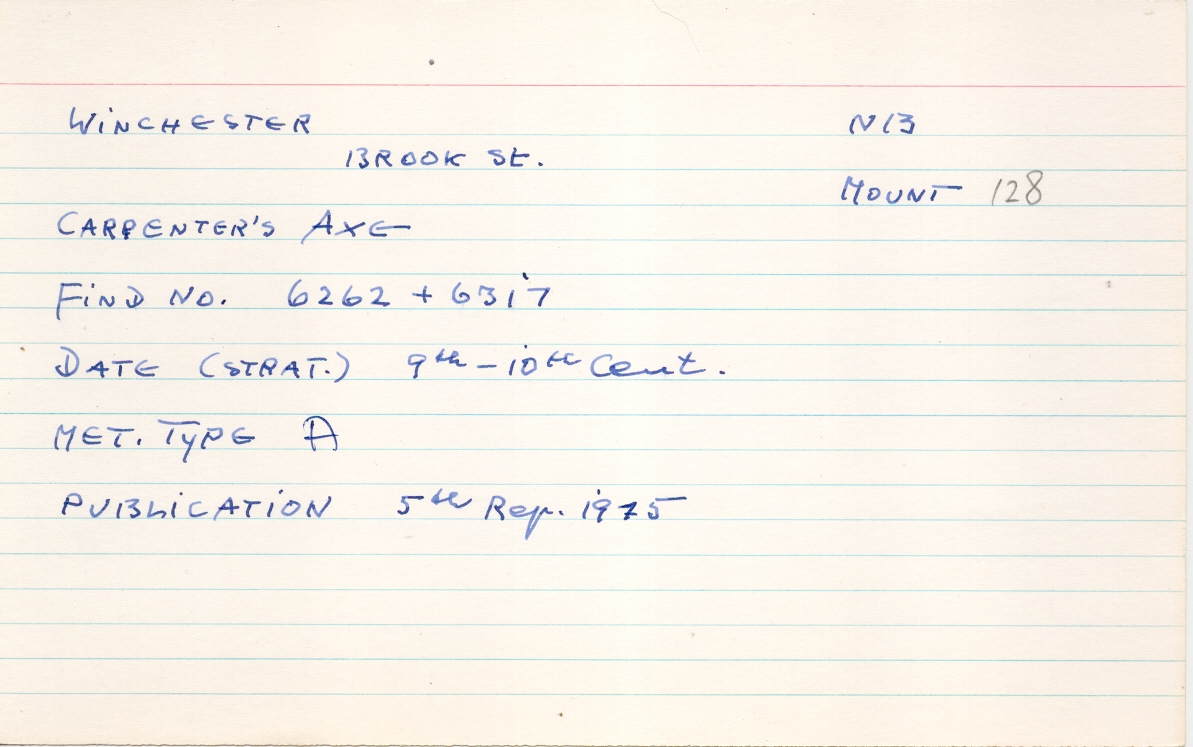 WINCHESTER N13
BROOK ST.
MOUNT 128
CARPENTER'S AXE
FIND NO. 6262 + 6317
DATE (STRAT.) 9th - 10th Cent.
MET. TYPE A
PUBLICATION 5th Rep. 1975